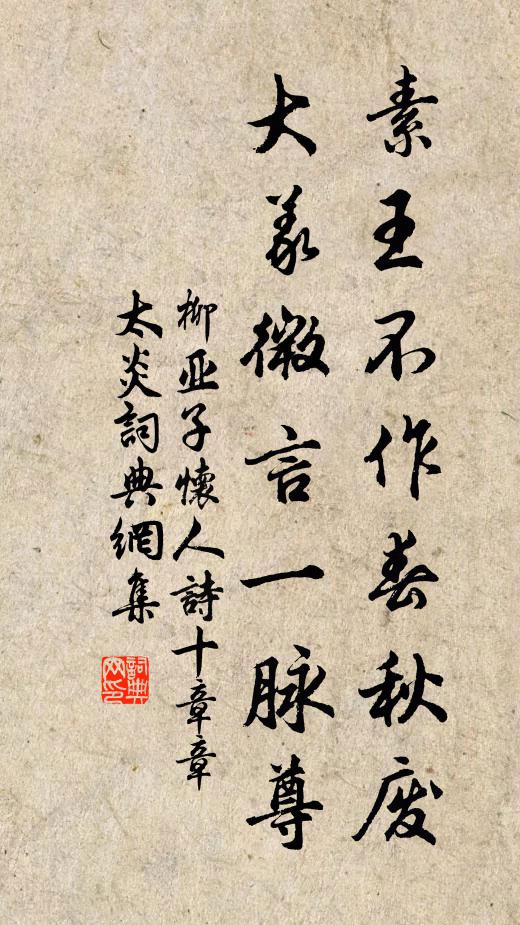 素王不作春秋废
大義微言一脉尊
柳亚子懷人詩十章章
太炎詞典網集
詞典网印